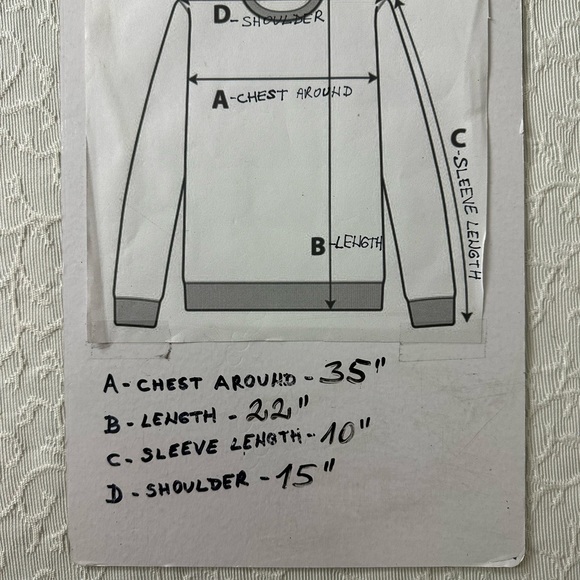 D-SHOULDER
A-CHEST AROUND
C-SLEEVE LENGTH
B-LENGTH
A-CHEST AROUND-35"
B-LENGTH-22"
C.SLEEVE LENGTH-10"
D-SHOULDER-15"